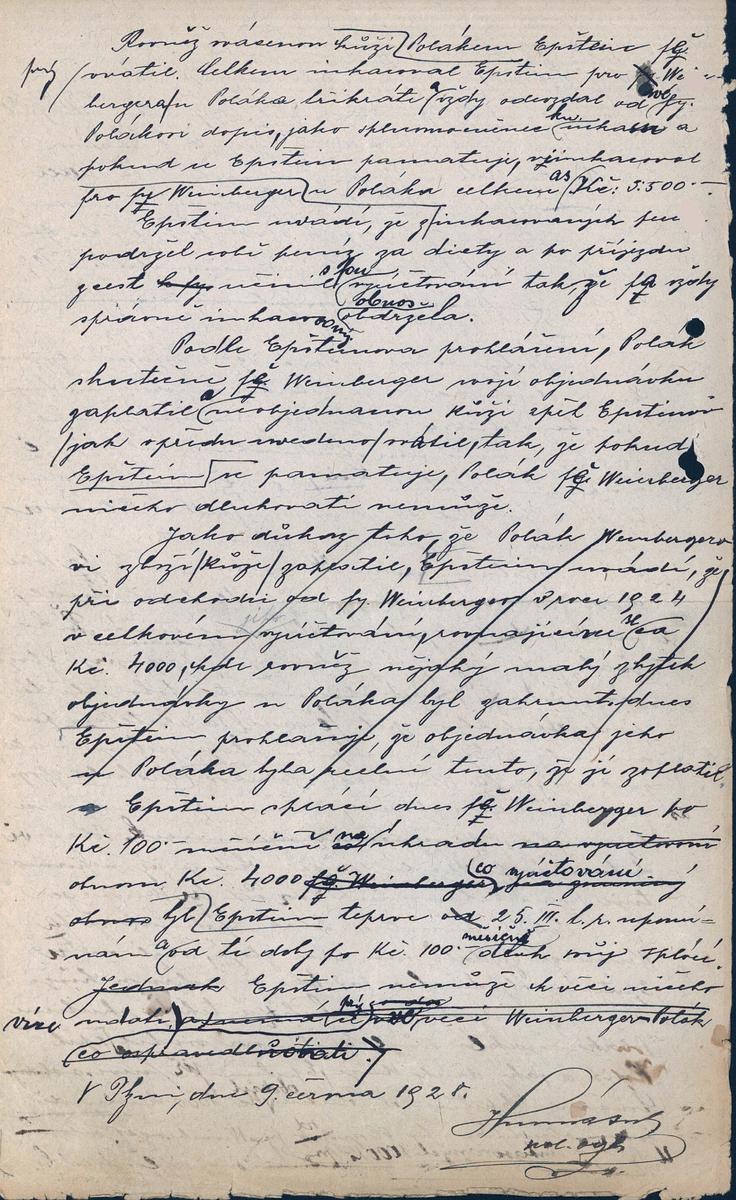 Rovněž vrácenou kůži Polákem Epstein fě
prý vrátil. Celkem inkasoval Epstein pro We-
bergera u Poláka třikráte a vždy odevzdal od fy.
Polákovi dopis, jako splnomocněnec ku inkasu a
pokud se Epstein pamatuje, inkasoval
pro fy Weinberger u Poláka celkem as Kč: 5.500.-
Epstein uvádí, že z inkasovaných peněz
podržel sobě peníz za diety a po příjezdu
z cest učinil s fou vyúčtování tak, že fa vždy
správně inkasovaný obnos obdržela.
Podle Epsteinova prohlášení, Polák
skutečně fě Weinberger svoji objednávku
zaplatil a neobjednanou kůži zpět Epsteinovi
jak vpředu uvedeno vrátil, tak, že pokud
Epstein se pamatuje, Polák fě Weinberger
ničeho dluhovati nemůže.
Jako důkaz toho, že Polák Weinbergero-
vi zboží /kůže/ zaplatil, Epstein uvádí, že
při odchodu od fy. Weinberger v roce 1924
v celkovém vyúčtování, rovnajícímu se ca
Kč. 4000, kde rovněž nějaký malý zbytek
objednávky u Poláka byl zahrnut, dnes
Epstein prohlašuje, že objednávka jeho
u Poláka byla reelní tento, že ji zaplatil.
Epstein splácí dnes fě Weinberger po
Kč. 100.- měsíčně na úhradu na vyúčtování
obnosu Kč. 4000 fě Weinberger, co vyúčtování
obnos byl Epstein teprve od 25. III. t. r. upomí-
nám a od té doby po Kč. 100.- měsíčně dluh svůj splácí.
Jednak Epstein nemůže k věci ničeho
více udati, věci Weinberger-Polák
V Plzni, dne 9. června 1928.
pol. agt.